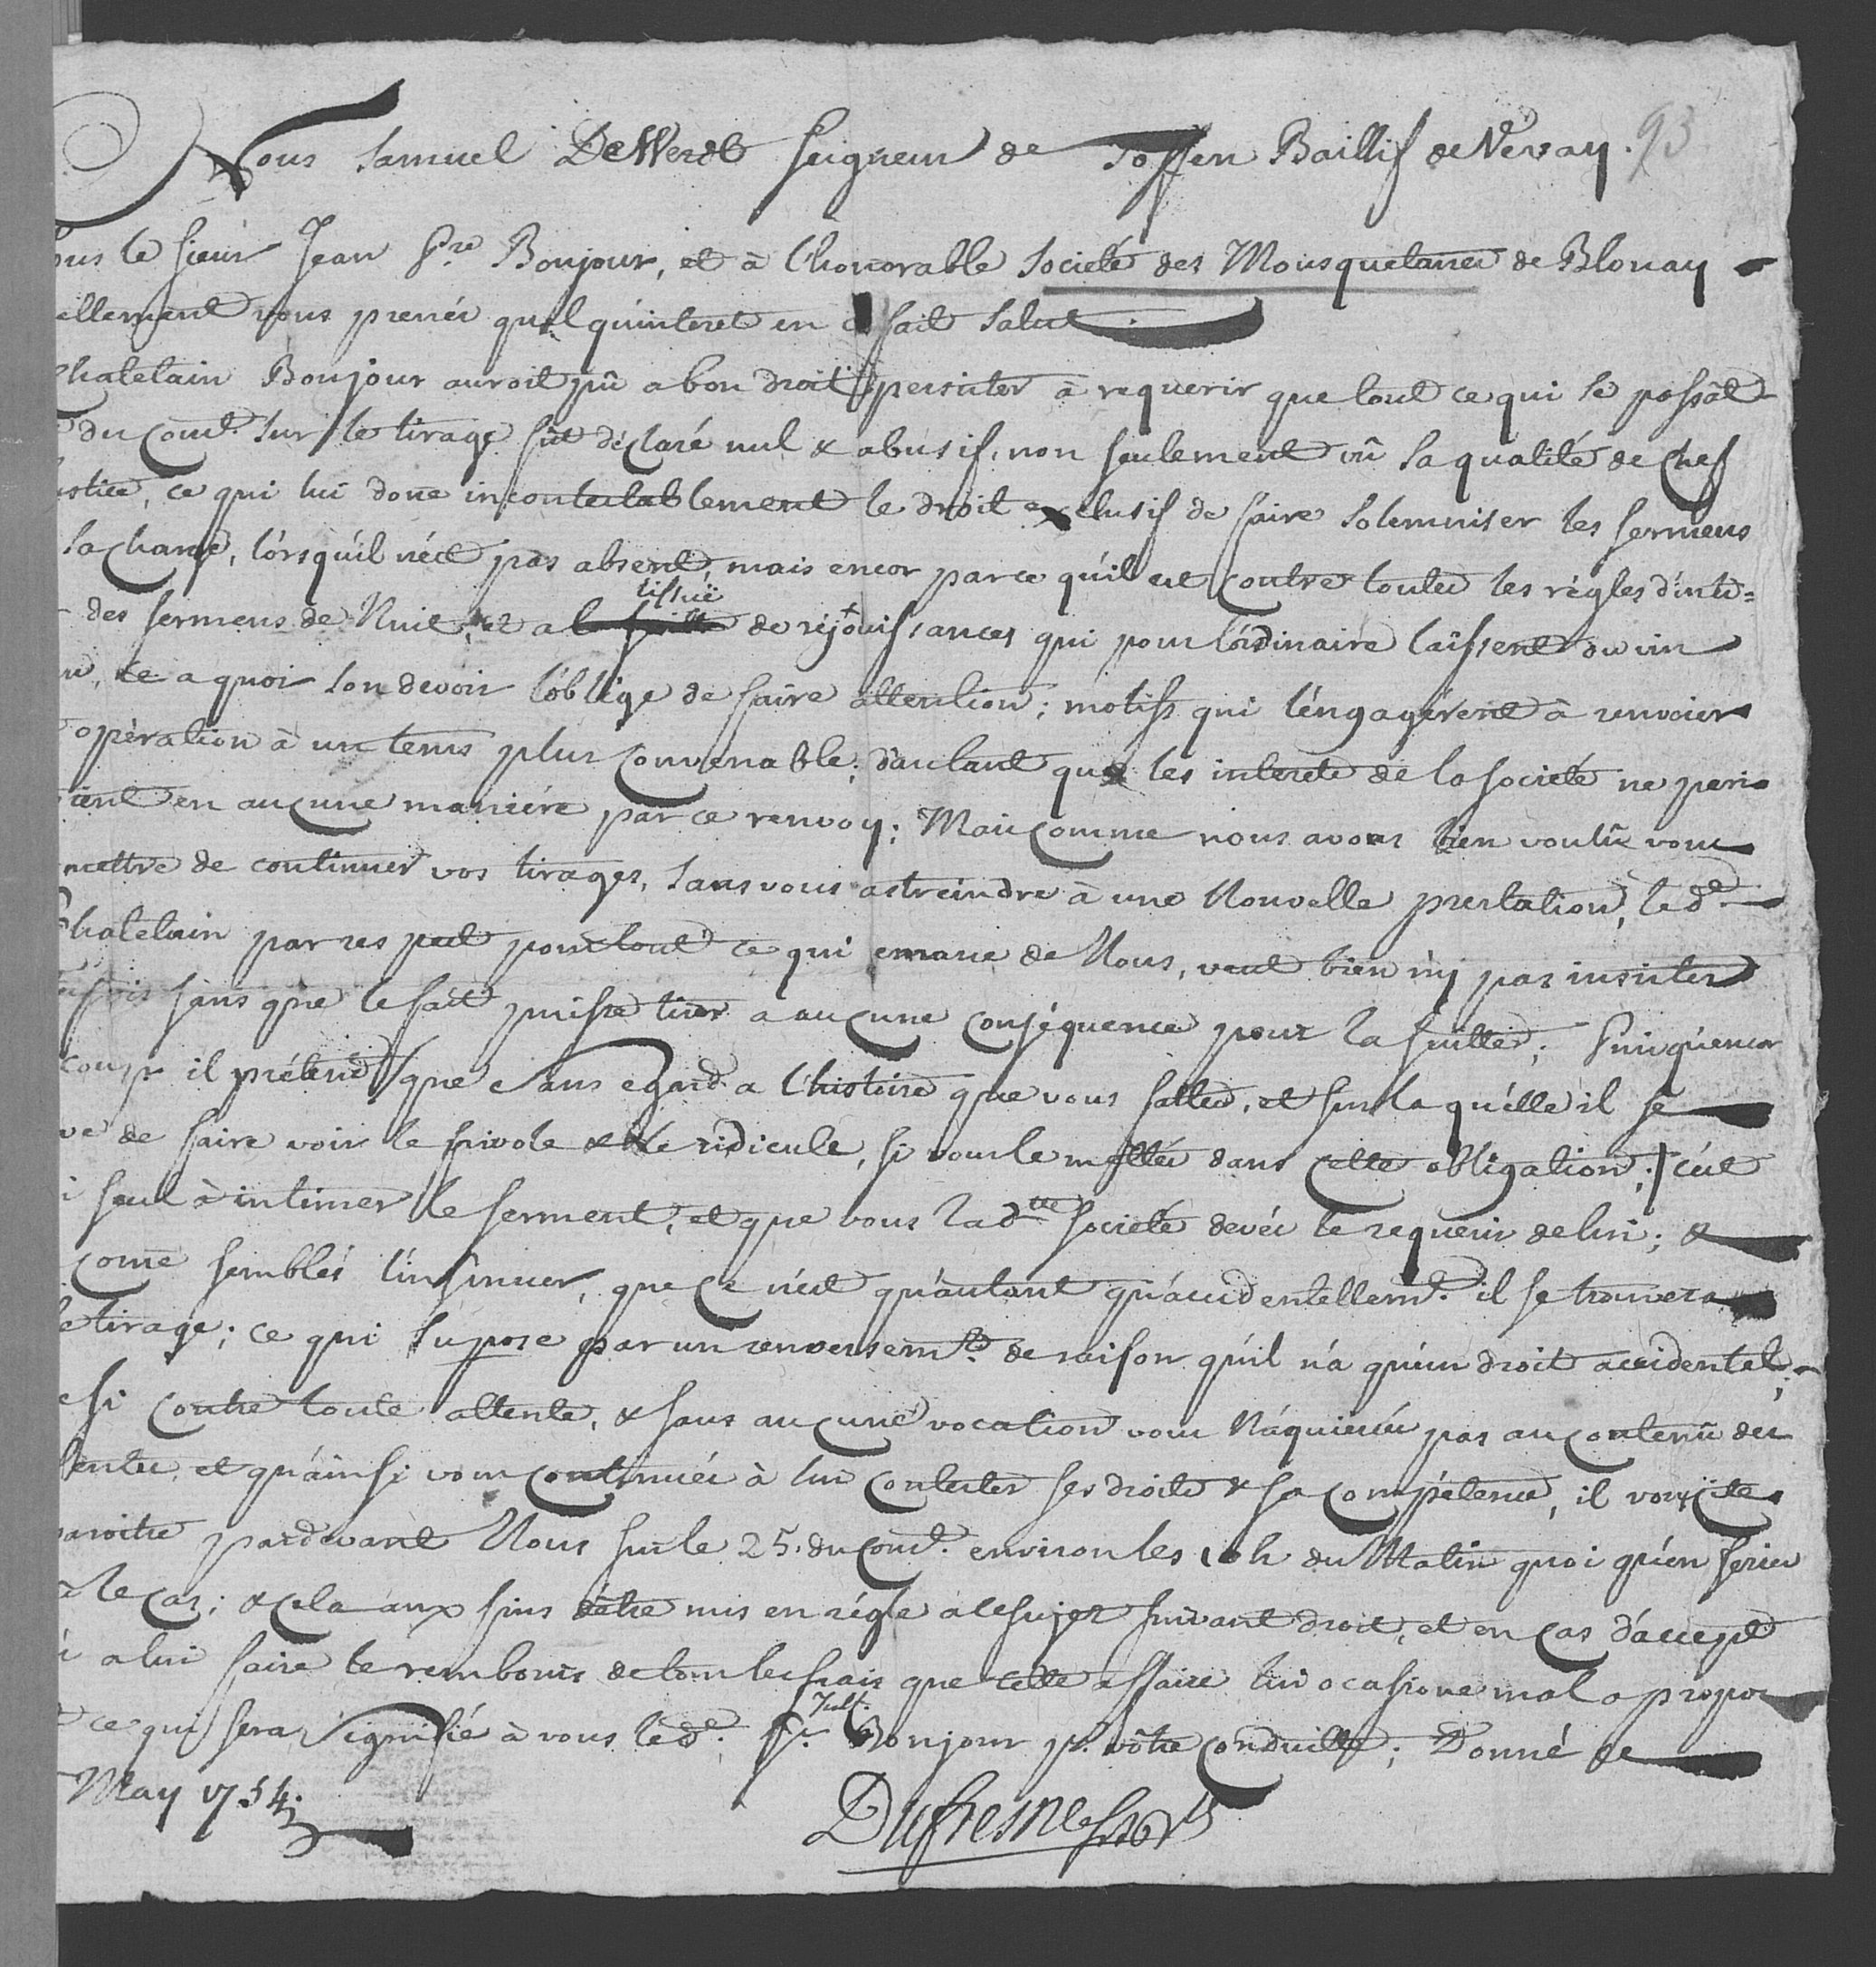 Nous Samuel DeWerdt Seigneur de Toffen Baillif de Vevay. 93
ous le sieur Jean Pre Bonjour, et à l'honorable Societé des Mousquetaires de Blonay
ellement vous prenés quelqu'interet en ce fait Salut.
Chatelain Bonjour auroit pû a bon droit persister à requerir que tout ce qui se passât
du cour.t sur le tirage fût déclaré nul & abusif, non seulement vû sa qualité de Chef
ustice, ce qui lui done incontestablement le droit exclusif de faire solemniser les sermens
sa charge, lórsqu'il n'est pas absent, mais encor parce qu'il est contre toutes les règles d'inti=
des sermens de Nuit, et a l'issuë de réjouissances qui pour l'ordinaire laissent du vin
ce a quoi son devoir l'oblige de faire attention; motifs qui l'éngagérent à renvoier
opèration à un tems plus convenable; d'autant que les interets de la societé ne peri
ient en aucune maniére par ce renvoy; Mais comme nous avons bien voulû vous
mettre de continuer vos tirages, sans vous astreindre à une Nouvelle prestation, led.t
Chatelain par respect pour tout ce qui emane de Nous, veut bien n'y pas insister
sans que le fait puisse tirer a aucune conséquence pour la suitte; Puisqu'encor
coup il prétend que sans egard a l'histoire que vous faites, et sur la qu'elle il se
ve de faire voir le frivole & le ridicule, si vous le mettés dans cette obligation; c'est
i seul à intimer le serment, et que vous lad.tte societé devés le requerir de lui; &
come semblés l'insinuer, que ce n'est qu'autant qu'accidentellem.t il se trouvera
le tirage; ce qui supose par un renversem.t de raison qu'il n'a qu'un droit accidentel;
e si contre toute attente, & sans aucune vocation vous n'aquiescés pas au contenû des
sentes, et qu'ainsi vous continués à lui contester ses droits & sa compétence, il vous cite
paroitre pardevant Nous sur le 25. du cour.t environ les 10 h du Matin quoi qu'en feries
le cas; & cela aux fins d'être mis en régle a ce sujet suivant droit, et en cas d'accept
a lui faire le rembours de tous les frais que cette affaire lui ocasione mal a propos
ce qui sera signifié à vous led.t Sr. Just. Bonjour pr. vôtre conduitte; Donné ce
May 1754.
Dufresne